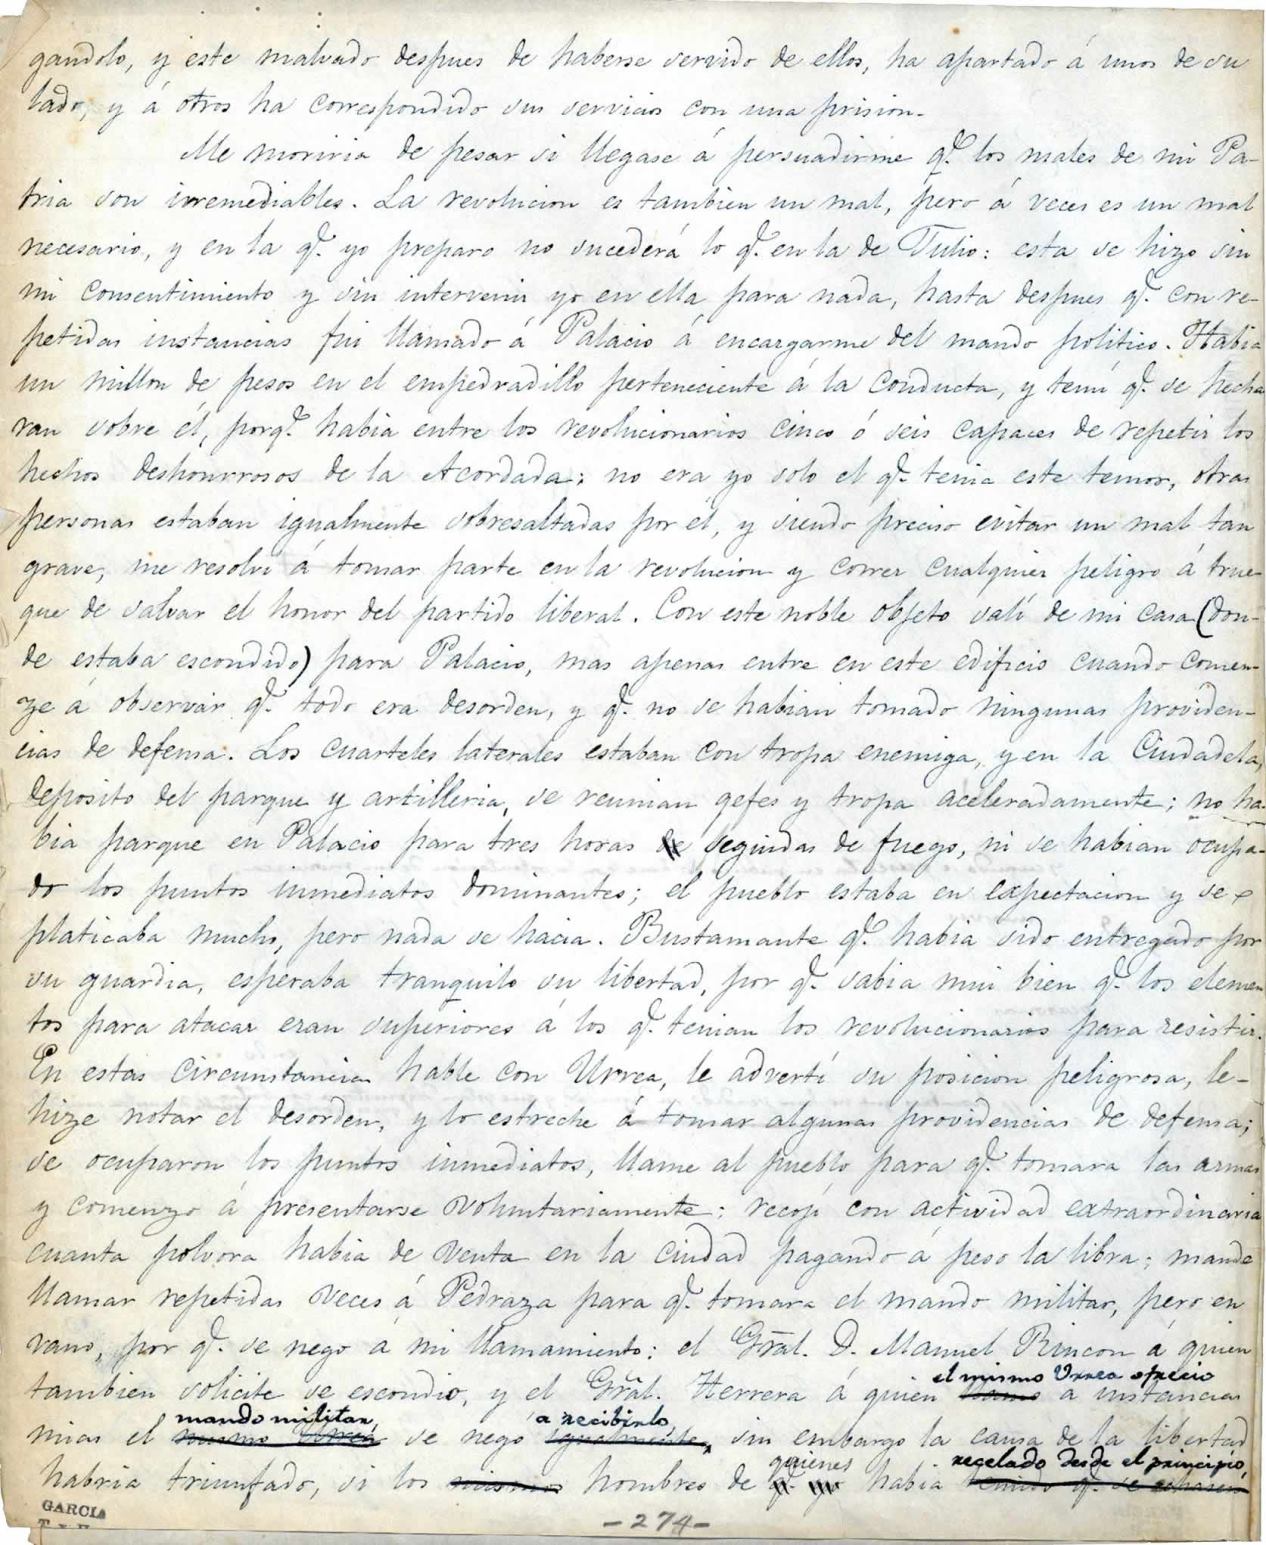 gandolo, y este malvado despues de haberse servido de ellos, ha apartado á unos de su
lado, y á otros ha correspondido sus servicios con una prision.
Me moriria de pesar si llegase á persuadirme q.e los males de mi Pa-
tria son irremediables. La revolucion es tambien un mal, pero á veces es un mal
necesario, y en la q.e yo preparo no sucederá lo q.e en la de Julio: esta se hizo sin
mi consentimiento y sin intervenir yo en ella para nada, hasta despues q.e con re-
petidas instancias fui llamado á Palacio á encargarme del mando politico. Habia
un millon de pesos en el empedradillo perteneciente á la conducta, y temí q.e se hecha
ran sobre él, porq.e habia entre los revolucionarios cinco ó seis capaces de repetir los
hechos deshonrrosos de la Acordada; no era yo solo el q.e tenia este temor, otras
personas estaban igualmente sobresaltadas por él, y siendo preciso evitar un mal tan
grave, me resolví á tomar parte en la revolucion y correr cualquier peligro á true-
que de salvar el honor del partido liberal. Con este noble objeto salí de mi casa (don-
de estaba escondido) para Palacio, mas apenas entre en este edificio cuando comen-
ze á observar q.e todo era desorden, y q.e no se habian tomado ningunas providen-
cias de defensa. Los cuarteles laterales estaban con tropa enemiga, y en la Ciudadela,
deposito del parque y artilleria, se reunian gefes y tropa aceleradamente; no ha-
bia parque en Palacio para tres horas de seguidas de fuego, ni se habian ocupa-
do los puntos inmediatos dominantes; el pueblo estaba en expectacion y se
platicaba mucho, pero nada se hacia. Bustamante q.e habia sido entregado por
su guardia, esperaba tranquilo su libertad, por q.e sabia mui bien q.e los elemen
tos para atacar eran superiores á los q.e tenian los revolucionarios para resistir.
En estas circunstancias hable con Urrea, le advertí su posicion peligrosa, le-
hize notar el desorden, y lo estreche á tomar algunas providencias de defensa;
se ocuparon los puntos inmediatos, llame al pueblo para q.e tomara las armas
y comenzo á presentarse voluntariamente: recojí con actividad extraordinaria
cuanta polvora habia de venta en la ciudad pagando á peso la libra; mande
llamar repetidas veces á Pedraza para q.e tomara el mando militar, pero en
vano, por q.e se nego á mi llamamiento: el Gral. D. Manuel Rincon á quien
el mismo Urrea ofrecio
tambien solicite se escondio, y el Gral. Herrera á quien llamo á instancias
mando militar, a recibirlo,
mias el mismo Urrea se nego igualmente, sin embargo la causa de la libertad
quienes recelado desde el principio,
habria triunfado, si los mismos hombres de q.e yo habia temido q.e se
GARCIA
-274-